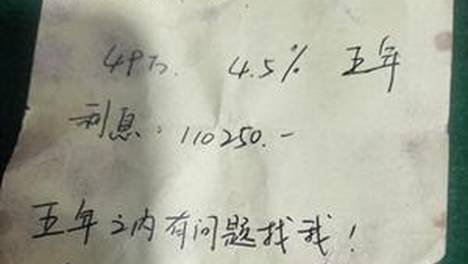 49万. 4.5% 五年
利息: 110250.-
五年之内有问题找我!